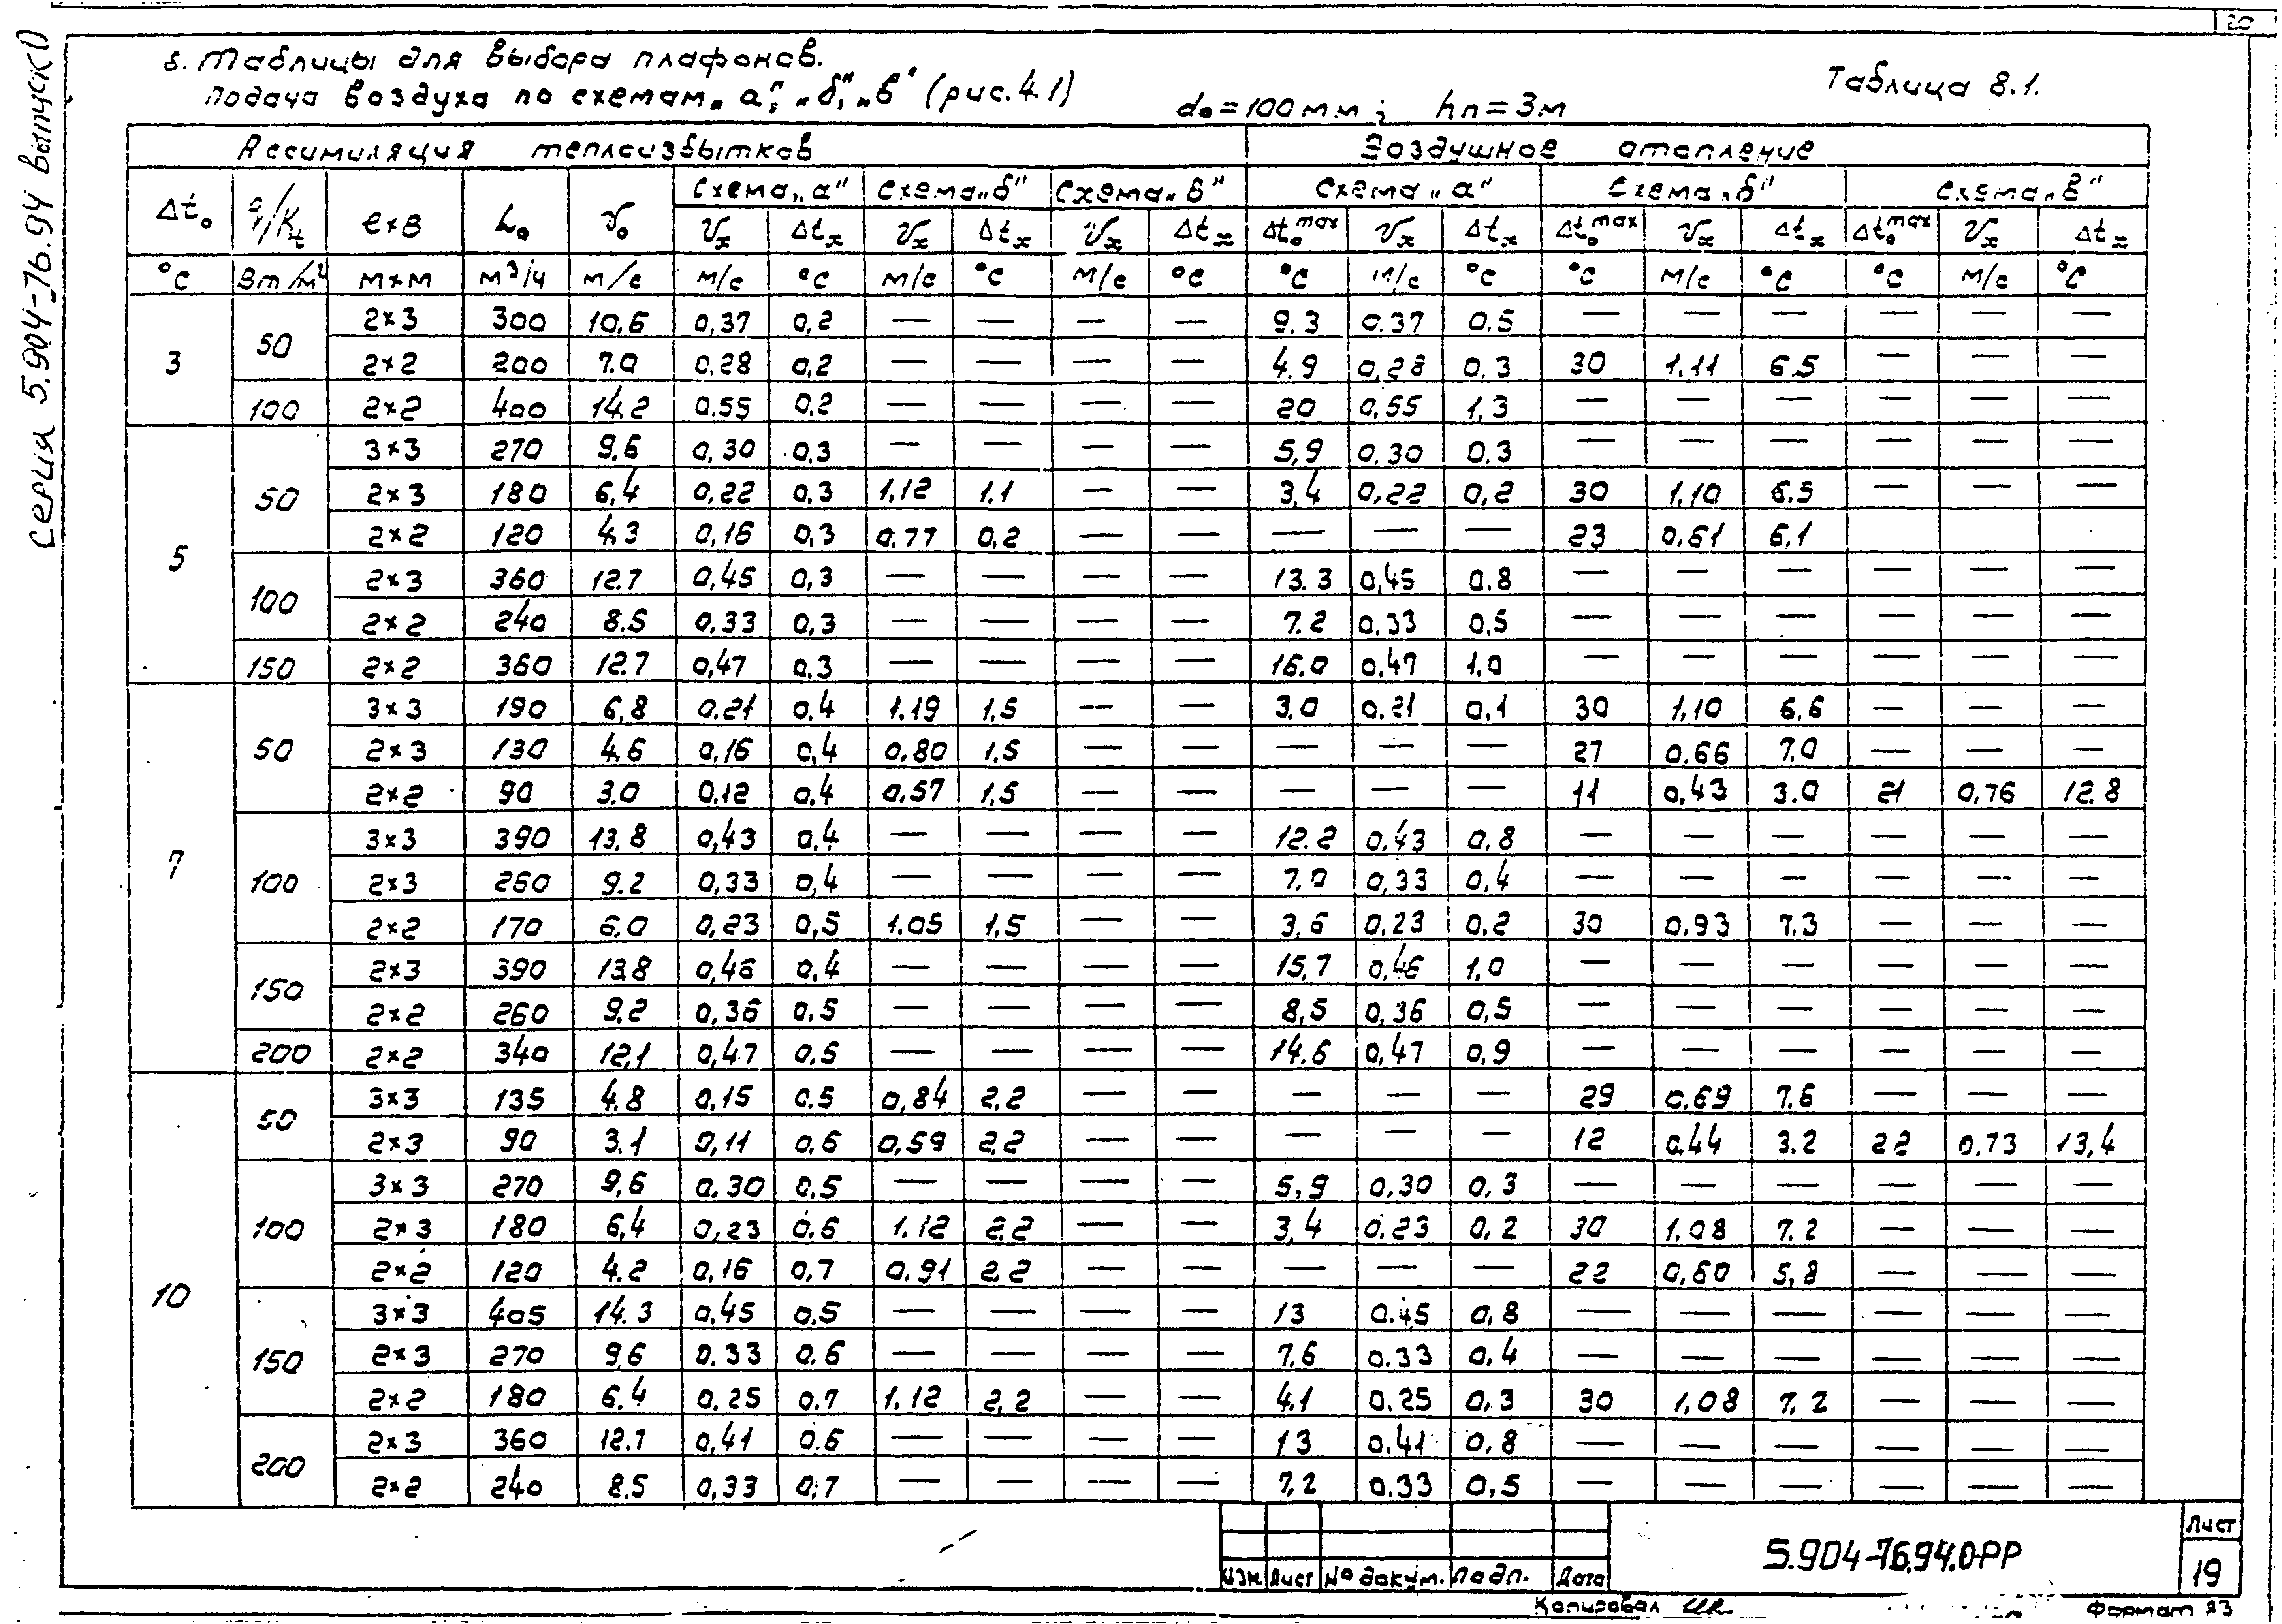 20
серия 5.904-76.94 выпуск 0
8. Таблицы для выбора плафонов.
Подача воздуха по схемам „а", „б", „в" (рис. 4.1)
d₀=100мм; hп=3м
Таблица 8.1.
Ассимиляция теплоизбытков | Воздушное отопление
Δt₀ | q/Kt | ℓ×В | L₀ | V₀ | Схема „а" | Схема „б" | Схема „в" | Схема „а" | Схема „б" | Схема „в"
Vx | Δtx | Vx | Δtx | Vx | Δtx | Δt₀max | Vx | Δtx | Δt₀max | Vx | Δtx | Δt₀max | Vx | Δtx
°С | Вт/м² | м×м | м³/ч | м/с | м/с | °С | м/с | °С | м/с | °С | °С | м/с | °С | °С | м/с | °С | °С | м/с | °С
3 | 50 | 2×3 | 300 | 10,6 | 0,37 | 0,2 | — | — | — | — | 9.3 | 0.37 | 0.5 | — | — | — | — | — | —
2×2 | 200 | 7.0 | 0,28 | 0,2 | — | — | — | — | 4.9 | 0,28 | 0.3 | 30 | 1.11 | 6.5 | — | — | —
100 | 2×2 | 400 | 14,2 | 0.55 | 0.2 | — | — | — | — | 20 | 0,55 | 1,3 | — | — | — | — | — | —
5 | 50 | 3×3 | 270 | 9,6 | 0,30 | 0.3 | — | — | — | — | 5,9 | 0,30 | 0.3 | — | — | — | — | — | —
2×3 | 180 | 6,4 | 0,22 | 0,3 | 1,12 | 1.1 | — | — | 3,4 | 0,22 | 0,2 | 30 | 1,10 | 6.5 | — | — | —
2×2 | 120 | 4.3 | 0,16 | 0,3 | 0.77 | 0.2 | — | — | — | — | — | 23 | 0.61 | 6.1
100 | 2×3 | 360 | 12.7 | 0,45 | 0,3 | — | — | — | — | 13.3 | 0,45 | 0.8 | — | — | — | — | — | —
2×2 | 240 | 8.5 | 0,33 | 0,3 | — | — | — | — | 7.2 | 0,33 | 0,5 | — | — | — | — | — | —
150 | 2×2 | 360 | 12.7 | 0,47 | 0.3 | — | — | — | — | 16.0 | 0,47 | 1,0 | — | — | — | — | — | —
7 | 50 | 3×3 | 190 | 6,8 | 0.21 | 0.4 | 1.19 | 1,5 | — | — | 3.0 | 0.21 | 0,1 | 30 | 1,10 | 6,6 | — | — | —
2×3 | 130 | 4,6 | 0,16 | 0,4 | 0,80 | 1.5 | — | — | — | — | — | 27 | 0.66 | 7.0 | — | — | —
2×2 | 90 | 3.0 | 0,12 | 0,4 | 0.57 | 1,5 | — | — | — | — | — | 11 | 0,43 | 3.0 | 21 | 0,76 | 12,8
100 | 3×3 | 390 | 13,8 | 0,43 | 0,4 | — | — | — | — | 12.2 | 0,43 | 0,8 | — | — | — | — | — | —
2×3 | 260 | 9.2 | 0,33 | 0,4 | — | — | — | — | 7.0 | 0,33 | 0,4 | — | — | — | — | — | —
2×2 | 170 | 6,0 | 0,23 | 0,5 | 1.05 | 1.5 | — | — | 3,6 | 0.23 | 0.2 | 30 | 0,93 | 7.3 | — | — | —
150 | 2×3 | 390 | 13.8 | 0,46 | 0,4 | — | — | — | — | 15,7 | 0,46 | 1,0 | — | — | — | — | — | —
2×2 | 260 | 9,2 | 0,36 | 0,5 | — | — | — | — | 8,5 | 0,36 | 0,5 | — | — | — | — | — | —
200 | 2×2 | 340 | 12,1 | 0,47 | 0.5 | — | — | — | — | 14.6 | 0,47 | 0,9 | — | — | — | — | — | —
10 | 50 | 3×3 | 135 | 4.8 | 0,15 | 0.5 | 0,84 | 2,2 | — | — | — | — | — | 29 | 0,69 | 7.6 | — | — | —
2×3 | 90 | 3.1 | 0,11 | 0,6 | 0,59 | 2,2 | — | — | — | — | — | 12 | 0.44 | 3.2 | 22 | 0,73 | 13,4
100 | 3×3 | 270 | 9,6 | 0.30 | 0.5 | — | — | — | — | 5,9 | 0,30 | 0,3 | — | — | — | — | — | —
2×3 | 180 | 6,4 | 0,23 | 0.6 | 1.12 | 2.2 | — | — | 3,4 | 0.23 | 0,2 | 30 | 1,08 | 7.2 | — | — | —
2×2 | 120 | 4.2 | 0,16 | 0,7 | 0.91 | 2,2 | — | — | — | — | — | 22 | 0,60 | 5,8 | — | — | —
150 | 3×3 | 405 | 14.3 | 0.45 | 0.5 | — | — | — | — | 13 | 0.45 | 0,8 | — | — | — | — | — | —
2×3 | 270 | 9,6 | 0.33 | 0.6 | — | — | — | — | 7,6 | 0.33 | 0,4 | — | — | — | — | — | —
2×2 | 180 | 6.4 | 0.25 | 0.7 | 1.12 | 2,2 | — | — | 4.1 | 0.25 | 0.3 | 30 | 1,08 | 7.2 | — | — | —
200 | 2×3 | 360 | 12.7 | 0,41 | 0.6 | — | — | — | — | 13 | 0.41 | 0,8 | — | — | — | — | — | —
2×2 | 240 | 8.5 | 0,33 | 0,7 | — | — | — | — | 7,2 | 0.33 | 0,5 | — | — | — | — | — | —
5.904-76.94.0-РР
Лист
19
Изм. Лист № докум. Подп. Дата
Копировал
Формат А3